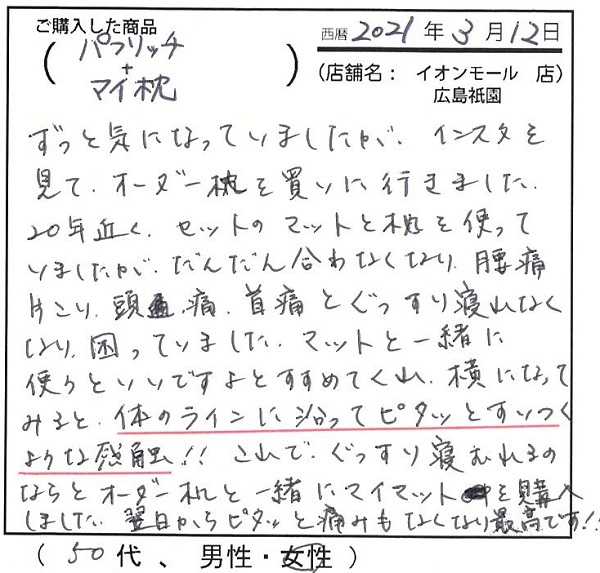 ご購入した商品
(パフリッチ
+
マイ枕)
西暦 2021 年 3 月 12 日
(店舗名： イオンモール 店)
広島祇園
ずっと気になっていましたが、インスタを
見て、オーダー枕を買いに行きました。
20年近く、セットのマットと枕を使って
いましたが、だんだん合わなくなり、腰痛
肩こり、頭痛、首痛とぐっすり寝れなく
なり、困っていました。マットと一緒に
使うといいですよとすすめてくれ、横になって
みると、体のラインに沿ってピタッとすいつく
ような感触!! これで、ぐっすり寝むれるの
ならとオーダー枕と一緒にマイマットを購入
しました。翌日からピタッと痛みもなくなり最高です!!
(50代、男性・女性)